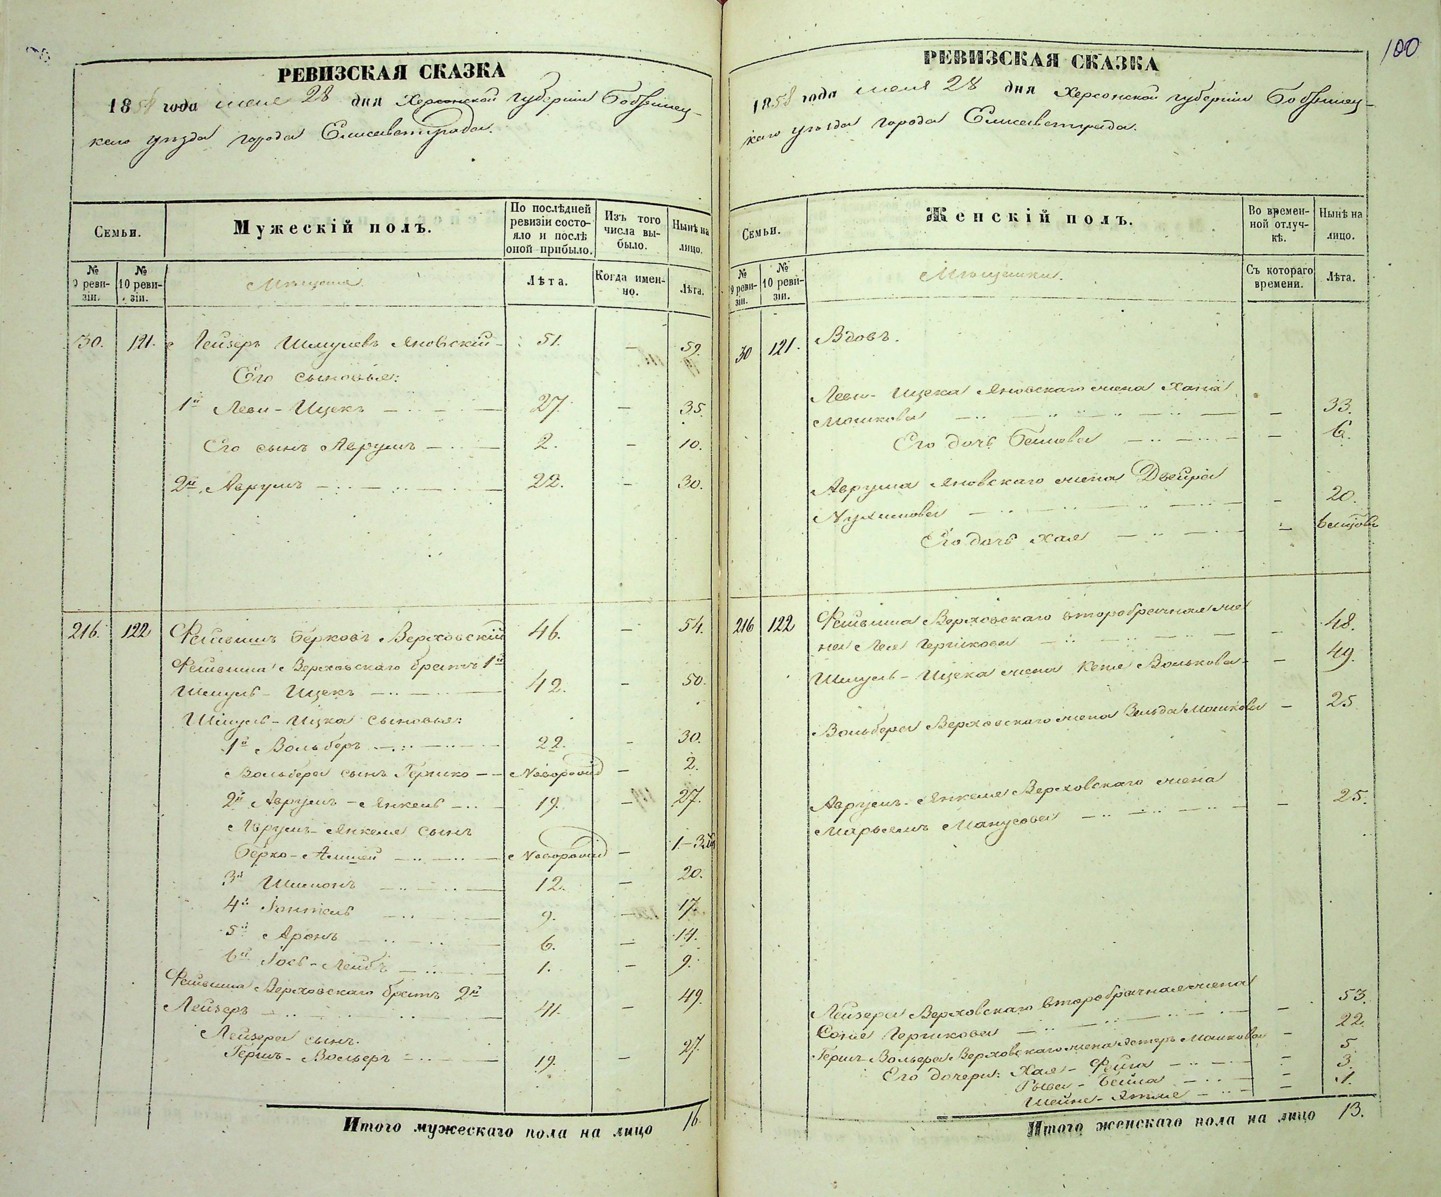 РЕВИЗСКАЯ СКАЗКА
1858 года июня 28 дня Херсонской губерніи Бобринец-
каго уѣзда города Елисаветграда.
Семьи.
Мужескій полъ.
По послѣдней ревизіи состо-яло и послѣ оной прибыло.
Изъ того числа вы-было.
Нынѣ на лицо.
№ 9 реви-зіи.
№ 10 реви-зіи.
Мѣщане
Лѣта.
Когда имен-но.
Лѣта.
30. 121. Лейзеръ Шмулевъ Яновскій 51. — 59.
Его сыновья:
1й Леви-Ицекъ 27. — 35.
Его сынъ Аврумъ 2. — 10.
2й Аврумъ 22. — 30.
216. 122 Фейвишъ Берковъ Верховскій 46. — 54.
Фейвиша Верховскаго братъ 1й
Шмуль-Ицекъ 42. — 50.
Шмуль-Ицка сыновья:
1й Вольберъ 22. — 30.
Вольбера сынъ Гершко — Новорожд — 2.
2й Аврумъ-Янкель 19. — 27.
Аврумъ-Янкеля сынъ
Берко- Новорожд —
3й Шимонъ 12. — 20.
4й 9. — 17.
5й Аронъ 6. — 14.
6й Іосъ-Лейбъ 1. — 9.
Фейвиша Верховскаго братъ 2й
Лейзеръ 41. — 49.
Лейзера сынъ.
Гершъ-Вольберъ 19. — 27.
Итого мужескаго пола на лицо 16.
100
РЕВИЗСКАЯ СКАЗКА
1858 года июня 28 дня Херсонской губерніи Бобринец-
каго уѣзда города Елисаветграда.
Семьи.
Женскій полъ.
Во времен-ной отлуч-кѣ.
Нынѣ на лицо.
№ 9 реви-зіи.
№ 10 реви-зіи.
Мѣщанки.
Съ котораго времени.
Лѣта.
30 121. Вдовъ.
Леви-Ицека Яновскаго жена Хана
Мошкова — 33.
Его дочь — 6.
Аврума Яновскаго жена Двейра
— 20.
Его дочь Хая —
216 122 Фейвиша Верховскаго второбрачная же
на Лея Гершкова — 48.
Шмуль-Ицека жена Волькова — 49.
Вольбера Верховскаго жена Зельда Мошкова — 25
Аврумъ-Янкеля Верховскаго жена
Марьемъ Манусова — 25.
Лейзера Верховскаго второбрачная жена
Сося Гершкова — 53.
Гершъ-Вольбера Верховскаго жена Эстеръ Мошкова — 22.
Его дочери: Хая-Фейга — 5
Рыва-Бейла — 3.
Шейне- — 1.
Итого женскаго пола на лицо 13.